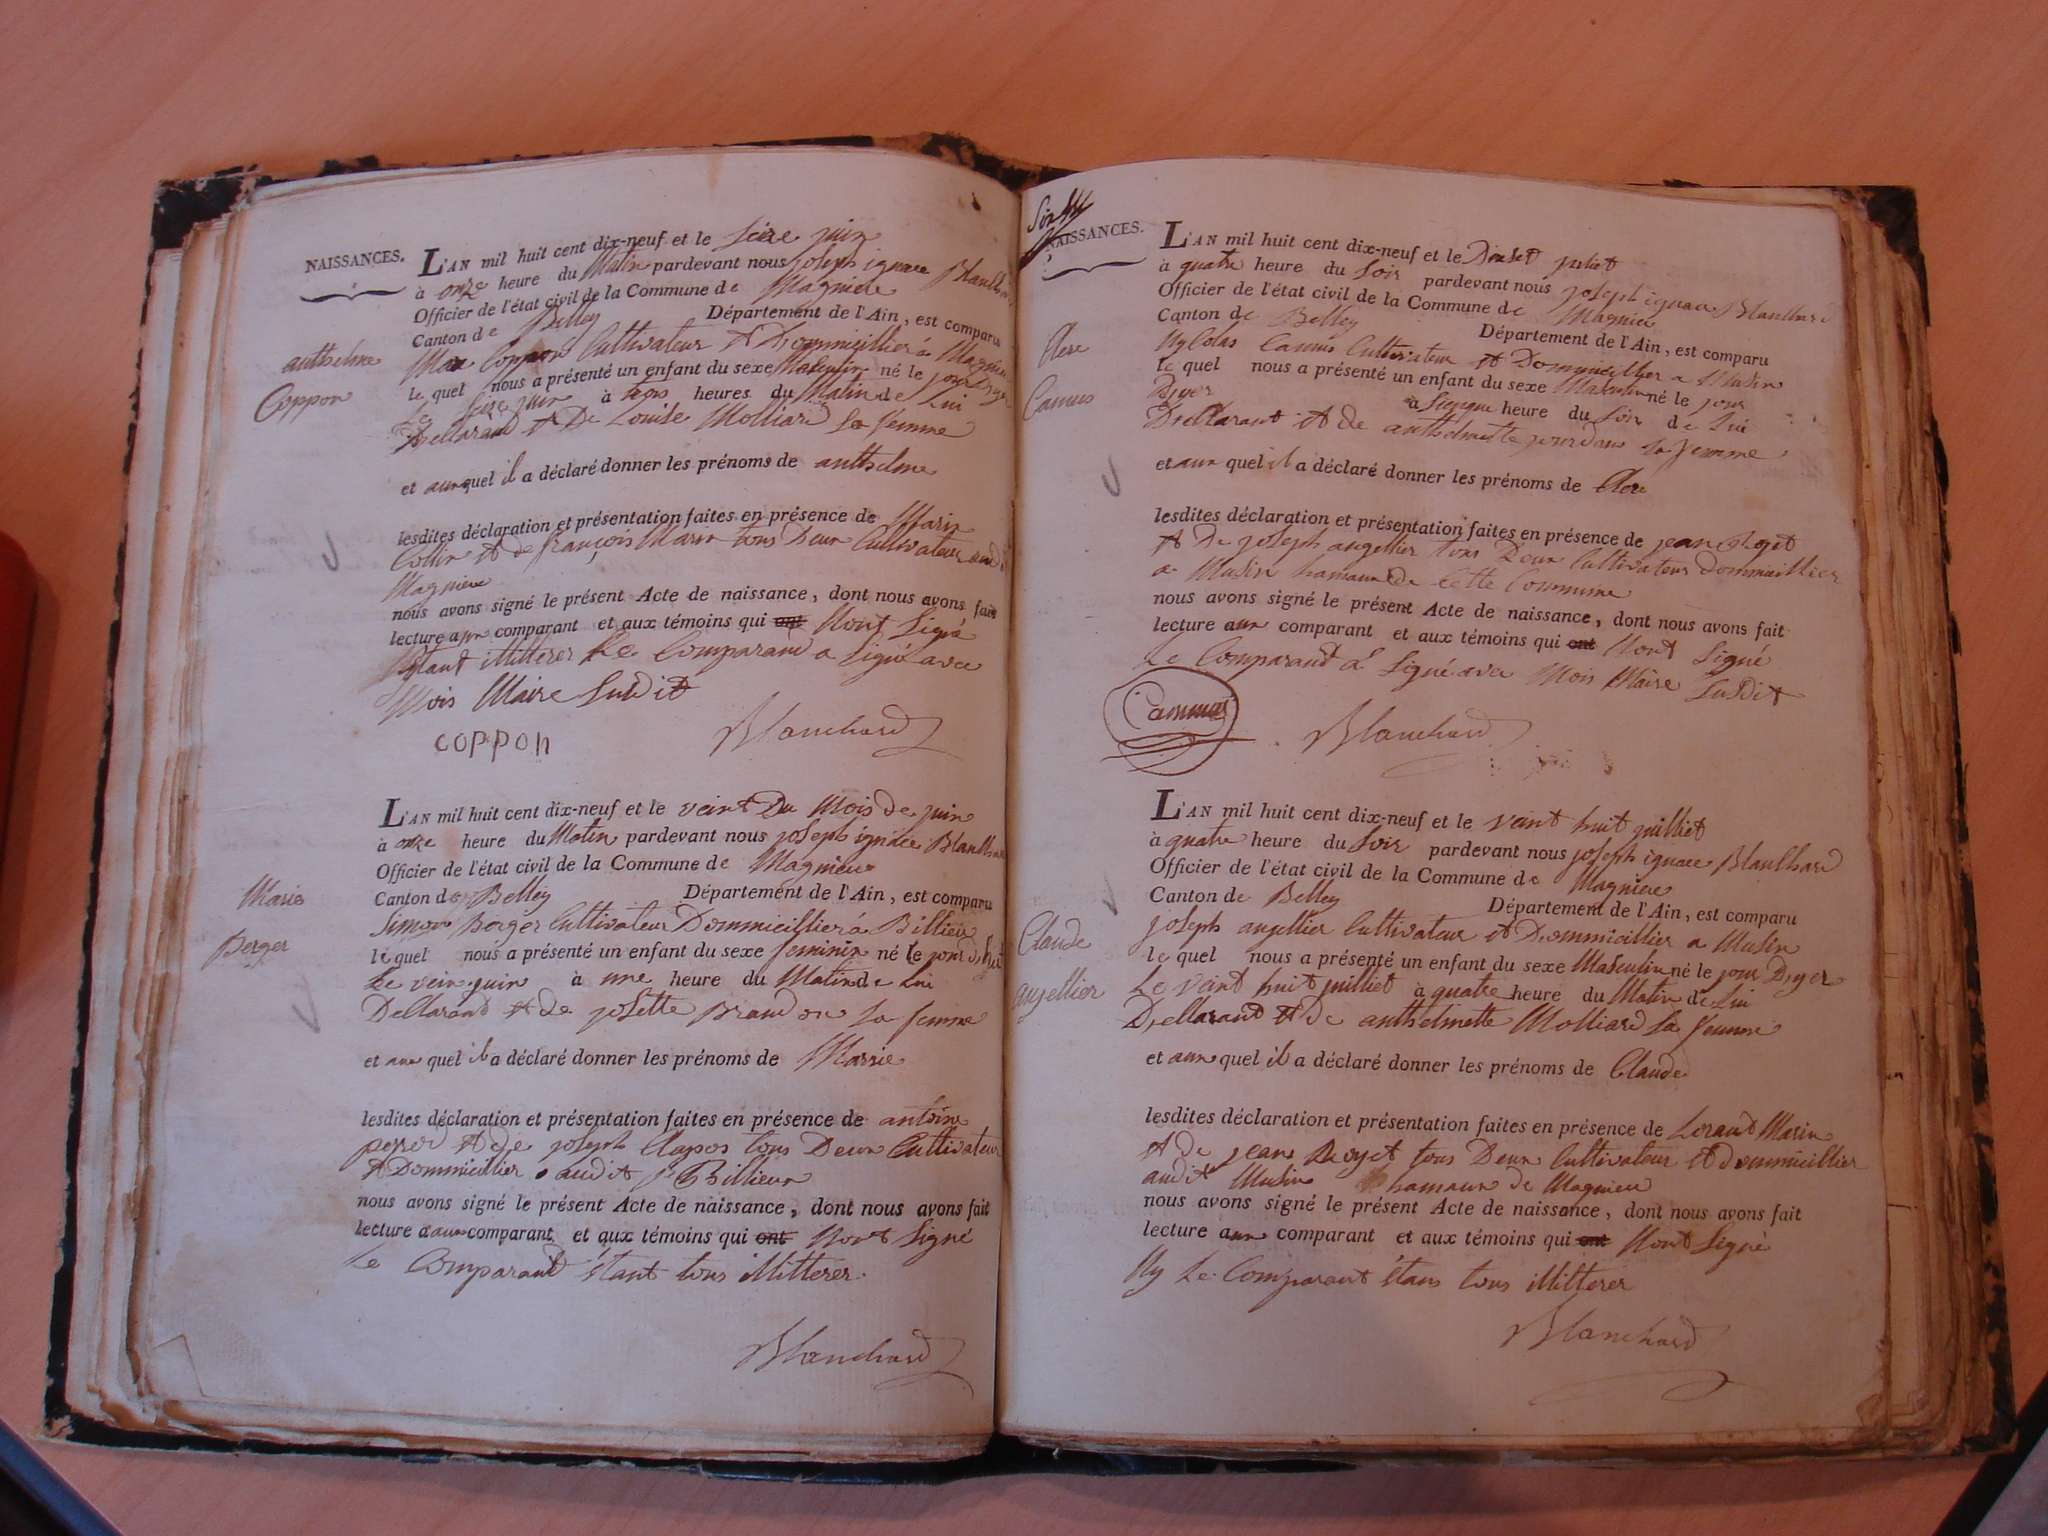 NAISSANCES.
L'AN mil huit cent dix-neuf et le Seize juin
à onze heure du Matin pardevant nous joseph ignace Blanchard
Officier de l'état civil de la Commune de Magnieu
Canton de Belley Département de l'Ain, est comparu
anthelme
Coppon
Coppon Cultivateur & Dommicillier à Magnieu
le quel nous a présenté un enfant du sexe Masculin né le jour Dyer
le Seize juin à trois heures du Matin de Lui
Decllarand & De Louise Molliard Sa femme
et auxquel il a déclaré donner les prénoms de anthelme
lesdites déclaration et présentation faites en présence de Marin
Collin & de françois Marin tous Deux Cultivateur audit
Magnieu
nous avons signé le présent Acte de naissance, dont nous avons fait
lecture aux comparant et aux témoins qui ont Nont Signé
Étant illitterer Le Comparand a Signé avec
Mois Maire Susdit
COPPON Blanchard
L'AN mil huit cent dix-neuf et le veint Du Mois de juin
à onze heure du Matin pardevant nous joseph ignace Blanchard
Officier de l'état civil de la Commune de Magnieu
Canton de Belley Département de l'Ain, est comparu
Marie
Berger
Simon Berger Cultivateur Dommicillier à Billieu
le quel nous a présenté un enfant du sexe feminin né le jour
Le vein juin à une heure du Matin de Lui
Decllarand & de josette Brandon Sa femme
et aux quel il a déclaré donner les prénoms de Marrie
lesdites déclaration et présentation faites en présence de antoine
& de joseph Clapos tous Deux Cultivateur
& Dommicillier audit Billieux
nous avons signé le présent Acte de naissance, dont nous avons fait
lecture aux comparant et aux témoins qui ont Nont Signé
Le Comparand Étant tous illitterer
Blanchard
NAISSANCES.
L'AN mil huit cent dix-neuf et le Douset juliet
à quatre heure du Soir pardevant nous joseph ignace Blanchard
Officier de l'état civil de la Commune de Magnieu
Canton de Belley Département de l'Ain, est comparu
Clere
Camus
Nycolas Camus Cultivateur & Dommicillier a Musin
le quel nous a présenté un enfant du sexe Masculin né le jour
Dyer à Sienque heure du Soir de Lui
Decllarant & de anthelmette jourdan sa femme
et aux quel il a déclaré donner les prénoms de Clere
lesdites déclaration et présentation faites en présence de jean Royet
& De joseph angellier tous Deux Cultivateur Dommicillier
a Musin hamaux de Cette Commune
nous avons signé le présent Acte de naissance, dont nous avons fait
lecture aux comparant et aux témoins qui ont Nont Signé
Le Comparant a Signé avec Mois Maire Susdit
Cammus Blanchard
L'AN mil huit cent dix-neuf et le vant huit juilliet
à quatre heure du Soir pardevant nous joseph ignace Blanchard
Officier de l'état civil de la Commune de Magnieu
Canton de Belley Département de l'Ain, est comparu
Claude
angellier
joseph angellier Cultivateur & Dommicillier a Musin
le quel nous a présenté un enfant du sexe Masculin né le jour Dyer
Le vant huit juilliet à quatre heure du Matin de Lui
Decllarand & de anthelmette Molliard Sa femme
et aux quel il a déclaré donner les prénoms de Claude
lesdites déclaration et présentation faites en présence de Lorand Marin
& de jean Royet tous Deux Cultivateur & Dommicillier
audit Musin hamaux de Magnieu
nous avons signé le présent Acte de naissance, dont nous avons fait
lecture aux comparant et aux témoins qui ont Nont Signé
Ny Le Comparant Étans tous illitterer
Blanchard